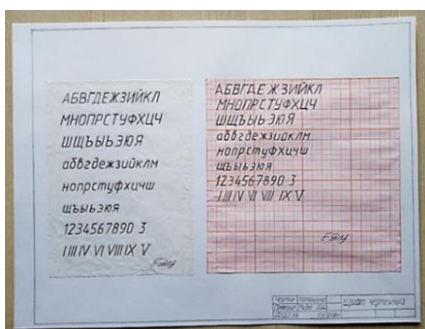 АБВГДЕЖЗИЙКЛ
МНОПРСТУФХЦЧ
ШЩЪЫЬЭЮЯ
абвгдежзийклм
нопрстуфхцчш
щъыьэюя
1234567890 3
I III IV VI VIII IX V
АБВГДЕЖЗИЙКЛ
МНОПРСТУФХЦЧ
ШЩЪЫЬЭЮЯ
абвгдежзийклм
нопрстуфхцчш
щъыьэюя
1234567890 3
I III IV VI VIII IX V
Шрифт чертежный